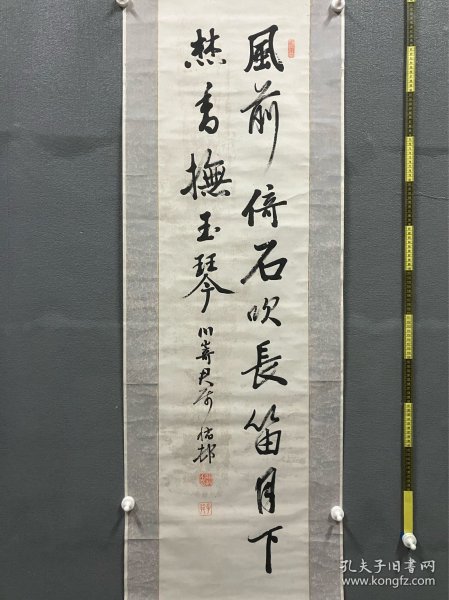 風前倚石吹長笛月下
焚香撫玉琴
川崎君属
孔夫子旧书网
www.kongfz.com